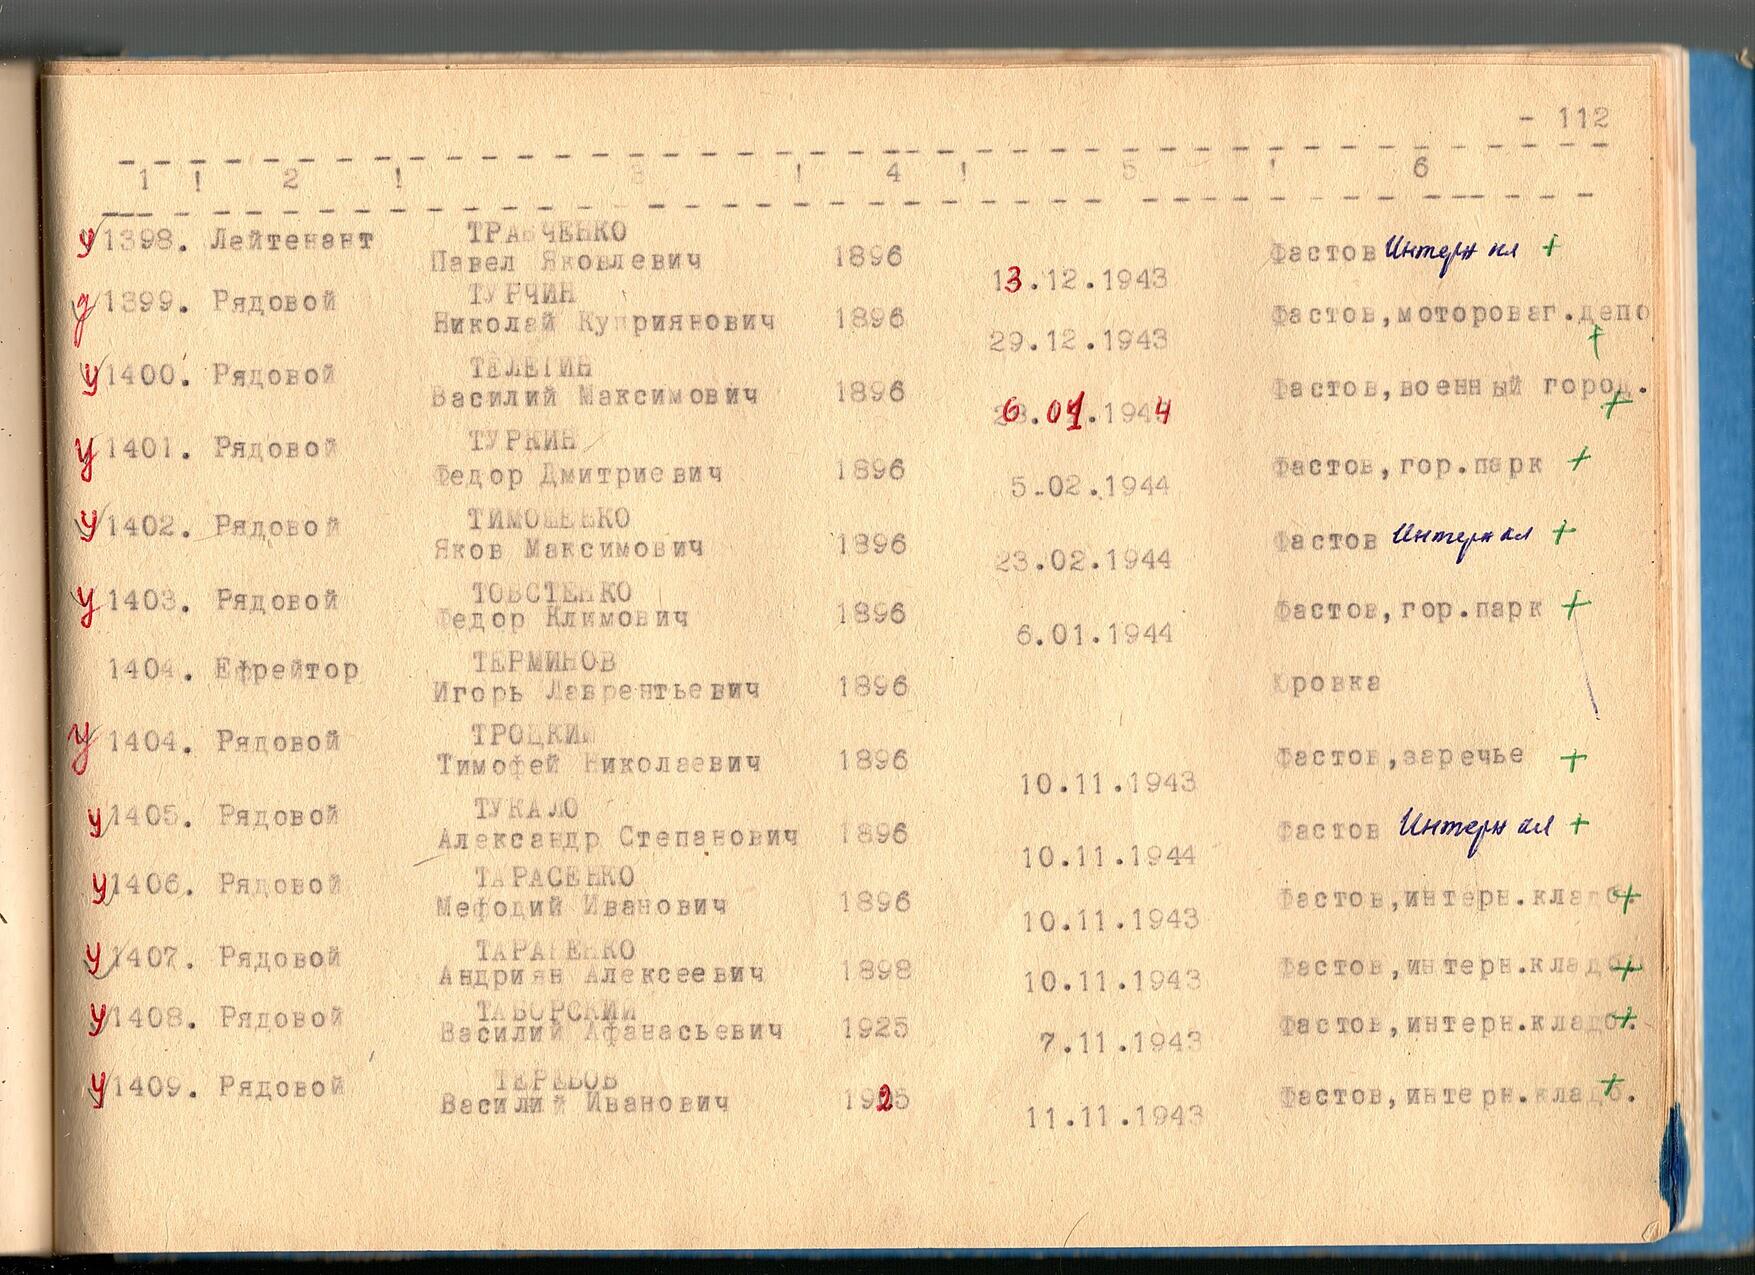 - 112
1 ! 2 ! 3 ! 4 ! 5 ! 6
у 1398. Лейтенант ТРАВЧЕНКО
Павел Яковлевич 1896 13.12.1943 Фастов Интернал +
1399. Рядовой ТУРЧИН
Николай Куприянович 1896 29.12.1943 Фастов,мотороваг.депо +
у 1400. Рядовой ТЕЛЕГИН
Василий Максимович 1896 6.01.1944 Фастов,военный город. +
у 1401. Рядовой ТУРКИН
Федор Дмитриевич 1896 5.02.1944 Фастов,гор.парк +
у 1402. Рядовой ТИМОШЕНКО
Яков Максимович 1896 23.02.1944 Фастов Интернал +
у 1403. Рядовой ТОВСТЕНКО
Федор Климович 1896 6.01.1944 Фастов,гор.парк +
1404. Ефрейтор ТЕРМИНОВ
Игорь Лаврентьевич 1896 Юровка
у 1404. Рядовой ТРОЦКИЙ
Тимофей Николаевич 1896 10.11.1943 Фастов,заречье +
у 1405. Рядовой ТУКАЛО
Александр Степанович 1896 10.11.1944 Фастов Интернал +
у 1406. Рядовой ТАРАСЕНКО
Мефодий Иванович 1896 10.11.1943 Фастов,интерн.кладб. +
у 1407. Рядовой
Андриян Алексеевич 1898 10.11.1943 Фастов,интерн.кладб. +
у 1408. Рядовой ТАБОРСКИЙ
Василий Афанасьевич 1925 7.11.1943 Фастов,интерн.кладб. +
у 1409. Рядовой
Василий Иванович 1925 11.11.1943 Фастов,интерн.кладб. +